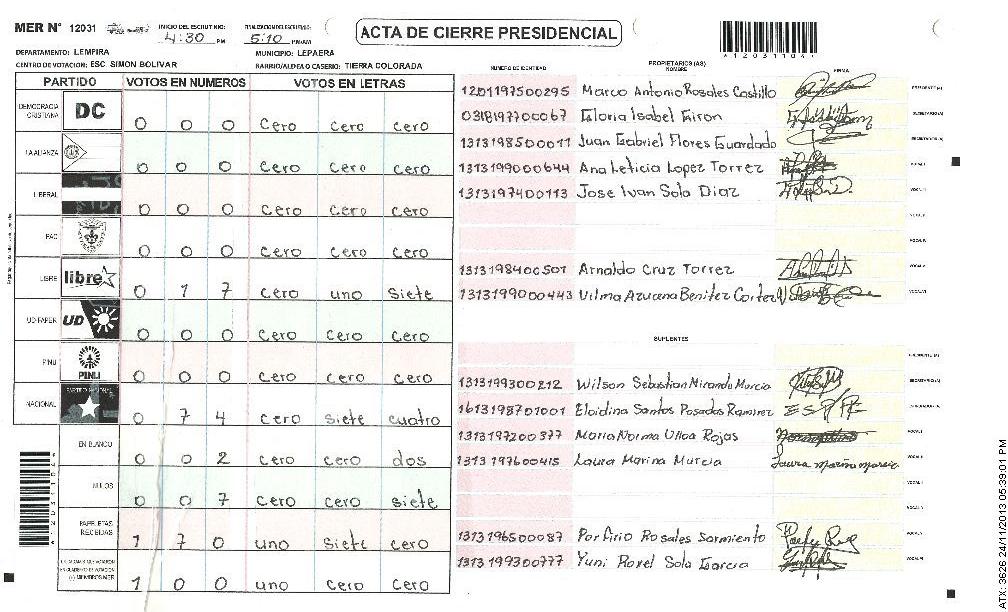 MER N° 12031 INICIO DEL ESCRUTINIO: 4:30 PM FINALIZACION DEL ESCRUTINIO: 5:10 PM/AM
ACTA DE CIERRE PRESIDENCIAL
DEPARTAMENTO: LEMPIRA MUNICIPIO: LEPAERA
CENTRO DE VOTACION: ESC. SIMON BOLIVAR BARRIO/ALDEA O CASERIO: TIERRA COLORADA
PARTIDO VOTOS EN NUMEROS VOTOS EN LETRAS
DEMOCRACIA CRISTIANA DC 0 0 0 cero cero cero
LA ALIANZA 0 0 0 cero cero cero
LIBERAL 0 0 0 cero cero cero
PAC 0 0 0 cero cero cero
LIBRE libre 0 1 7 cero uno siete
UD-FAPER UD 0 0 0 cero cero cero
PINU PINU 0 0 0 cero cero cero
NACIONAL PARTIDO NACIONAL 0 7 4 cero siete cuatro
EN BLANCO 0 0 2 cero cero dos
NULOS 0 0 7 cero cero siete
PAPELETAS RECIBIDAS 1 7 0 uno siete cero
CIUDADANOS QUE VOTARON
EN CUADERNO DE VOTACION
(+) MIEMBROS MER 1 0 0 uno cero cero
12031104
NUMERO DE IDENTIDAD PROPIETARIOS (AS) NOMBRE FIRMA
1201197500295 Marco Antonio Rosales Castillo PRESIDENTE (A)
0318197700067 Gloria Isabel Giron SECRETARIO (A)
1313198500011 Juan Gabriel Flores Guardado
1313199000644 Ana Leticia Lopez Torrez VOCAL I
1313197400113 Jose Ivan Sola Diaz VOCAL II
1313198400501 Arnaldo Cruz Torrez
1313199000443 Vilma Azucena Benitez Cortez
SUPLENTES
PRESIDENTE (A)
1313199300212 Wilson Sebastian Miranda Murcia SECRETARIO (A)
1613198701001 Eloidina Santos Posadas Ramirez
1313197200377 Maria Norma Ulloa Rojas
1313197600415 Laura Marina Murcia
1313196500087 Porfirio Rosales Sarmiento
1313199300777 Yuni Roxel Sola Garcia
ATX: 3626 24/11/2013 05:39:01 PM